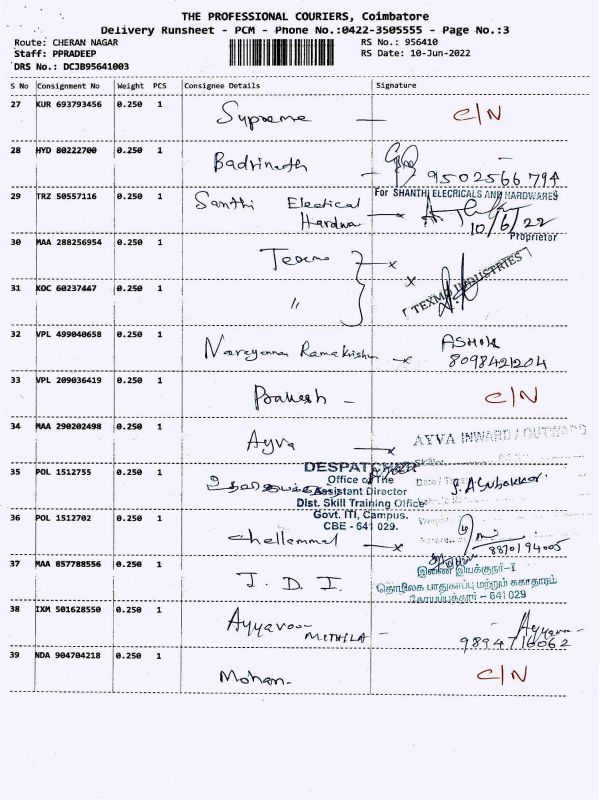 THE PROFESSIONAL COURIERS, Coimbatore
Delivery Runsheet - PCM - Phone No.:0422-3505555 - Page No.:3
Route: CHERAN NAGAR RS No.: 956410
Staff: PPRADEEP RS Date: 10-Jun-2022
DRS No.: DCJB95641003
S No Consignment No Weight PCS Consignee Details Signature
27 KUR 693793456 0.250 1 Supreme — C/N
28 HYD 80222700 0.250 1 Badrinath - 9502566794
29 TRZ 50557116 0.250 1 Santhi Electical
Hardwa
For SHANTHI ELECRICALS AND HARDWARES
10/6/22
Proprietor
30 MAA 288256954 0.250 1 Texmo
31 KOC 60237447 0.250 1 "
TEXMO INDUSTRIES
32 VPL 499040658 0.250 1 Narayanan Ramakrishn ASHOK
8098421204
33 VPL 209036419 0.250 1 Prakash - C/N
34 MAA 290202498 0.250 1 Ayva
AYVA INWARD / OUTWARD
35 POL 1512755 0.250 1
DESPATCHED
Office of The
Assistant Director
Dist. Skill Training Office
Govt. ITI, Campus.
CBE - 641 029.
36 POL 1512702 0.250 1 Chellammal 8870194005
37 MAA 857788556 0.250 1 J. D. I.
இணை இயக்குநர்-I
தொழிலக பாதுகாப்பு மற்றும் சுகாதாரம்
கோயம்புத்தூர் - 641 029
38 IXM 501628550 0.250 1 Ayyavoo
MITHILA - 9894716062
39 NDA 904704218 0.250 1 Mohan C/N